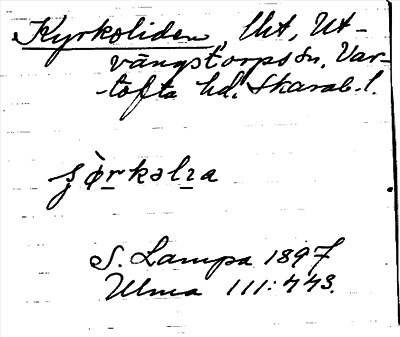 Kyrkoliden, lht, Ut-
vängstorps sn, Var-
tofta hd. Skarab. l.
S. Lampa 1897
Ulma 111:443.